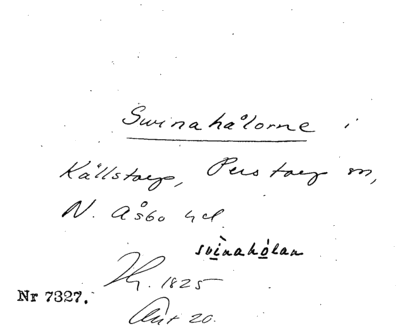 Swinahålorne i
Källstorp, Perstorp sn,
N. Åsbo hd.
svìnahólan
Hg. 1825
Nr 7327.
Akt 20.